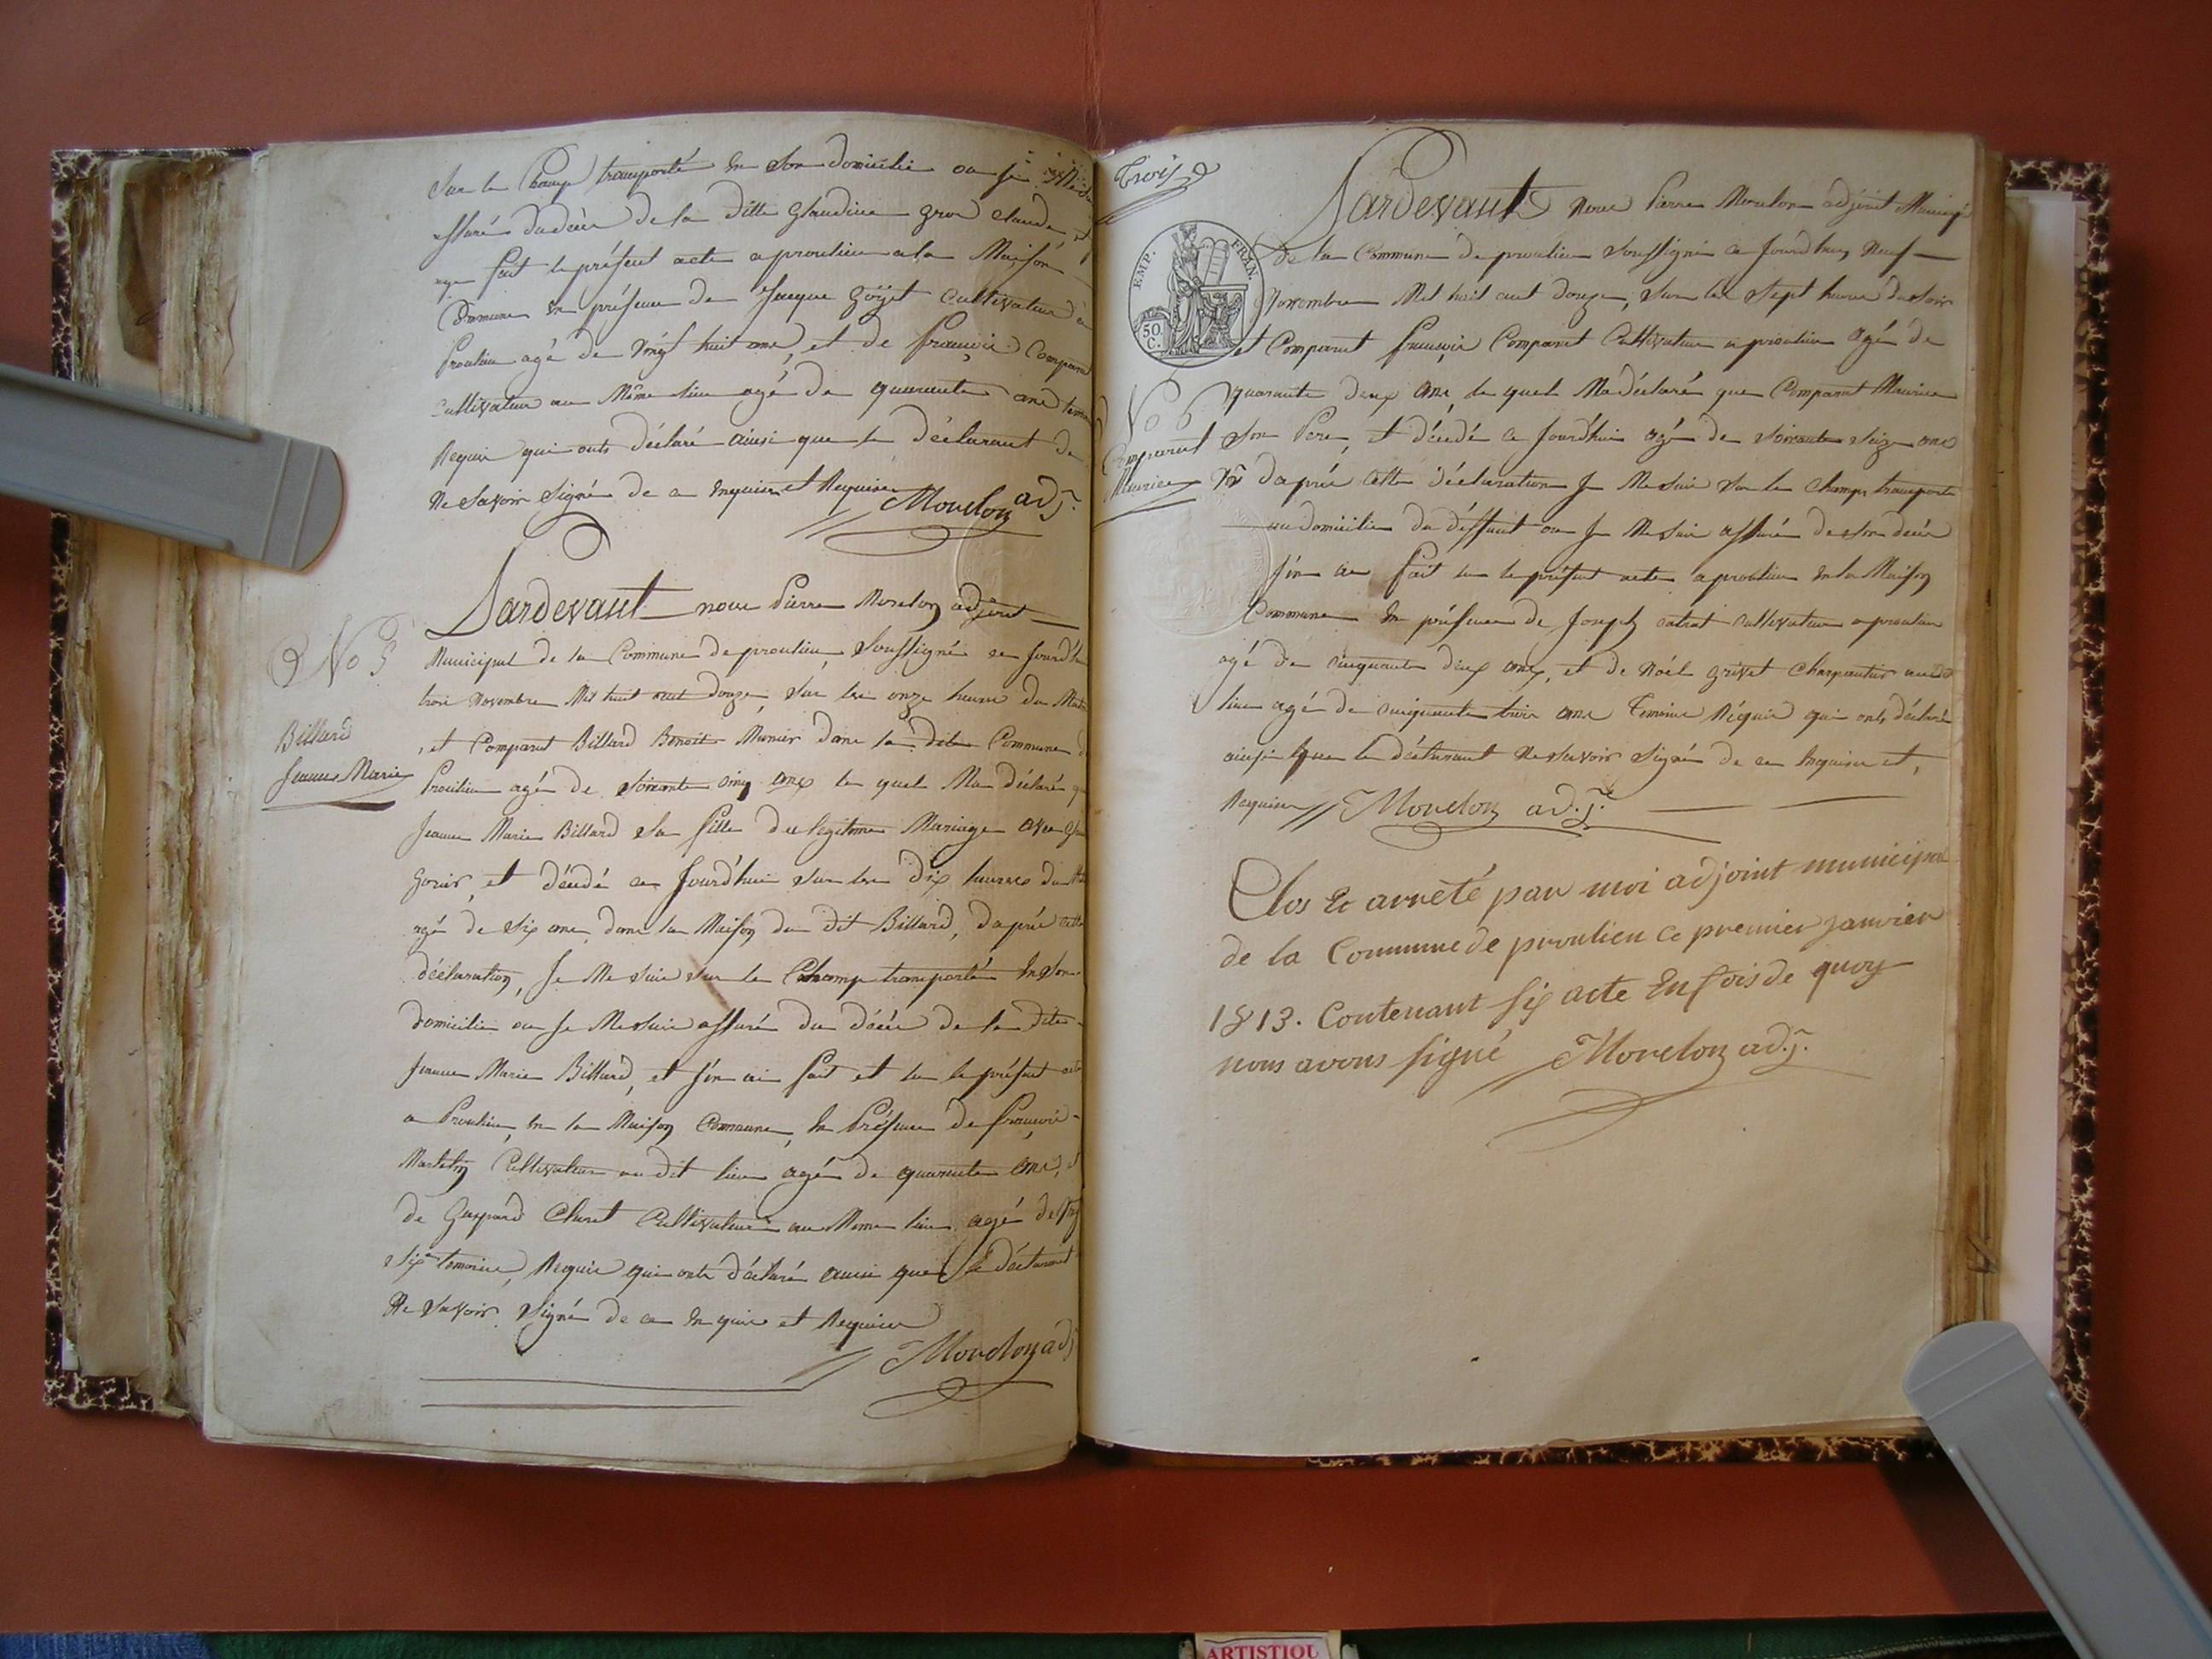 Sur le Champ transporté en Son domicilie ou je
assuré du décès de la ditte glaudine gros claude et
fait le présent acte a proulieu a la Maison
Commune en présence de Jacque goÿet Cultivateur à
Proulieu agé de vingt huit ans, et de françois Comparet
Cultivateur au Même lieu agé de quarante ans temoins
Requis qui onts déclaré ainsi que le déclarant de
Ne Savoir Signé de ce enquis et Requis
Mouclon adj.
Pardevant nous Pierre Mouclon adjoint
No 5
Municipal de la Commune de proulieu Soussigné ce Jourd'hui
trois Novembre Mil huit cent douze, Sur les onze heures du Matin
Billard
Jeanne Marie
et Comparut Billard Benoit Munier dans la dite Commune de
Proulieu agé de Soixante cinq ans le quel Ma déclaré que
Jeanne Marie Billard Sa fille du legitime Mariage avec
et décédé ce Jourd'hui Sur les Dix heures du
agé de Six ans, dans la Maison du dit Billard, daprés cette
déclaration, Je Me Suis Sur le Champ transporté en Son
domicilie ou Je Me Suis assuré du décès de la dite
Jeanne Marie Billard, et J'en ai fait et lu le présent acte
a Proulieu, en la Maison Commune, en Présence de françois
Cultivateur au dit lieu agé de quarante ans, et
de Gaspard Cultivateur au Meme lieu agé de
Six temoins, Requis qui onts déclaré ainsi que le déclarant
Ne Savoir Signé de ce enquis et Requis
Mouclon adj
Trois
Pardevant Nous Pierre Mouclon adjoint Municipal
EMP. FRAN.
50 C.
de la Commune de proulieu Soussigné ce Jourd'huy Neuf
Novembre Mil huit cent douze, Sur les Sept heures du Soir
et Comparut françois Comparet Cultivateur a proulieu agé de
No 6
quarante deux ans, le quel Ma déclaré que Comparet Maurice
Comparet
Maurice
Son Pere, et décédé ce Jourd'hui agé de Soixante Seize ans
daprés cette déclaration Je Me Suis Sur le Champs transporté
au domicilie du déffunt ou Je Me Suis assuré de Son décès
J'en ai fait lu le présent acte a proulieu en la Maison
Commune en présence de Joseph Cultivateur a proulieu
agé de cinquante deux ans, et de Noël grivet Charpantier au dit
lieu agé de cinquante trois ans Temoins Réquis qui onts déclaré
ainsi que le déclarant Ne Savoir Signé de ce enquis et,
Requis Mouclon adj.
Clos Et arrêté par moi adjoint municipal
de la Commune de proulieu Ce premier Janvier
1813. Contenant Six acte En fois de quoy
nous avons Signé Mouclon adj.
ARTISTIQU